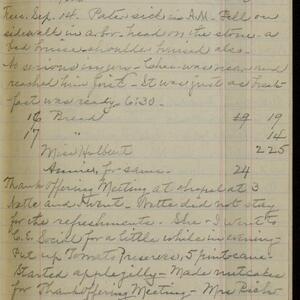 Tues. Sep. 14. Pate sick in A.M. Fell on
sidewalk in a.bor. head on the stone - a
bad bruise, shoulder bruised also.
No serious injury - Chas. was near and
reached him first - It was just as break-
fast was ready. 6:30.
16 Bread 19
17 " 14
Miss Holbert 2 25
Annie, for same. 24
Thank offering Meeting at chapel at 3
Nette and I went. Nette did not stay
for the refreshments. She & I went to
C.E. Social for a little while in evening -
Put up Tomato Preserves, 5 pint cans.
Started apple jelly - Made nutcakes
for Thank offering Meeting - Mrs Rich-